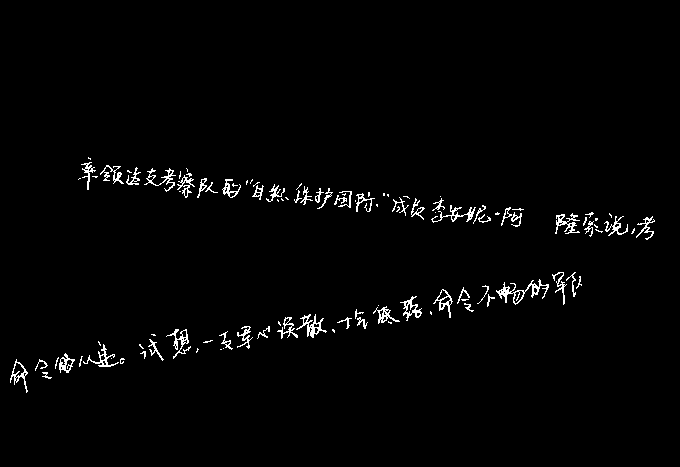 率领这支考察队的“自然保护国际”成员李安妮·阿 隆索说,考
命令的从速。试想,一支军心涣散、士气低落、命令不畅的军队